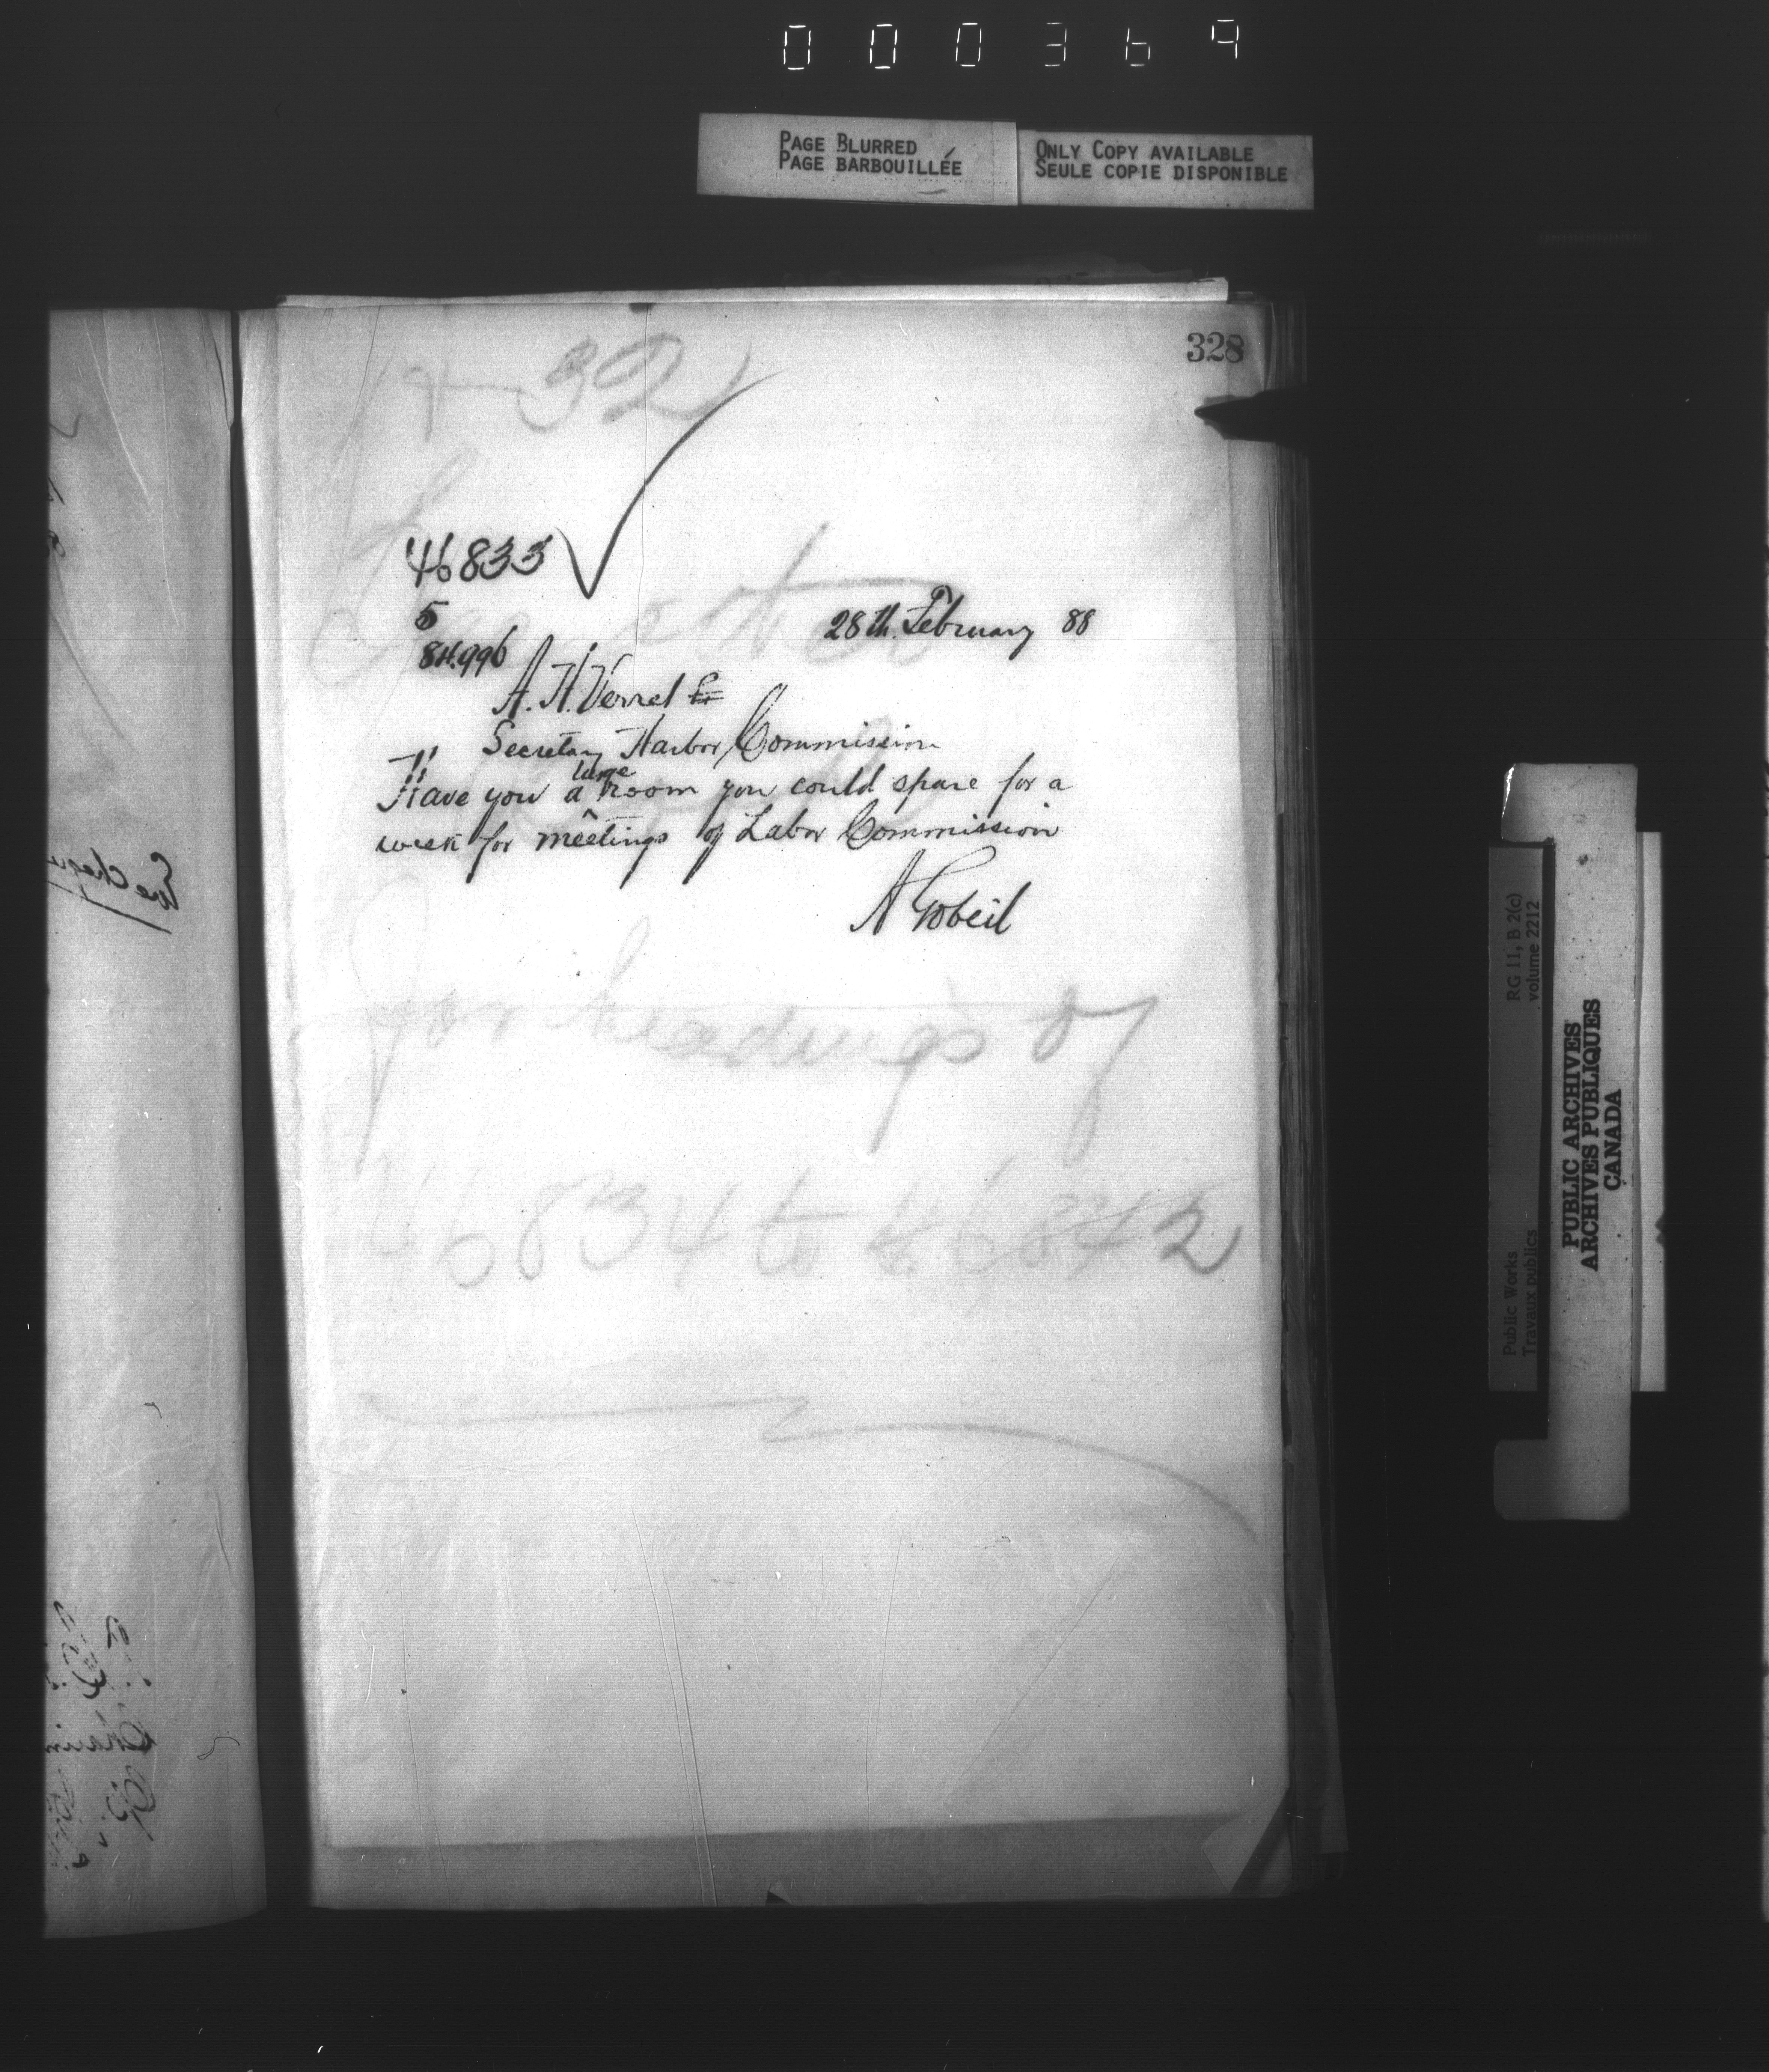 000369
PAGE BLURRED
PAGE BARBOUILLÉE
ONLY COPY AVAILABLE
SEULE COPIE DISPONIBLE
328
32
46833
5
84.996
28th. February 88
A. H. Verret
Secretary Harbor Commission
Have you a large room you could spare for a
week for meetings of Labor Commission
A Gobeil
for headings of
46834 to 46842
RG 11, B 2(c)
volume 2212
Public Works
Travaux publics
PUBLIC ARCHIVES
ARCHIVES PUBLIQUES
CANADA